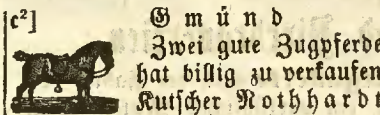 c²]
Gmünd
Zwei gute Zugpferde
hat billig zu verkaufen
Kutscher Rothhardt